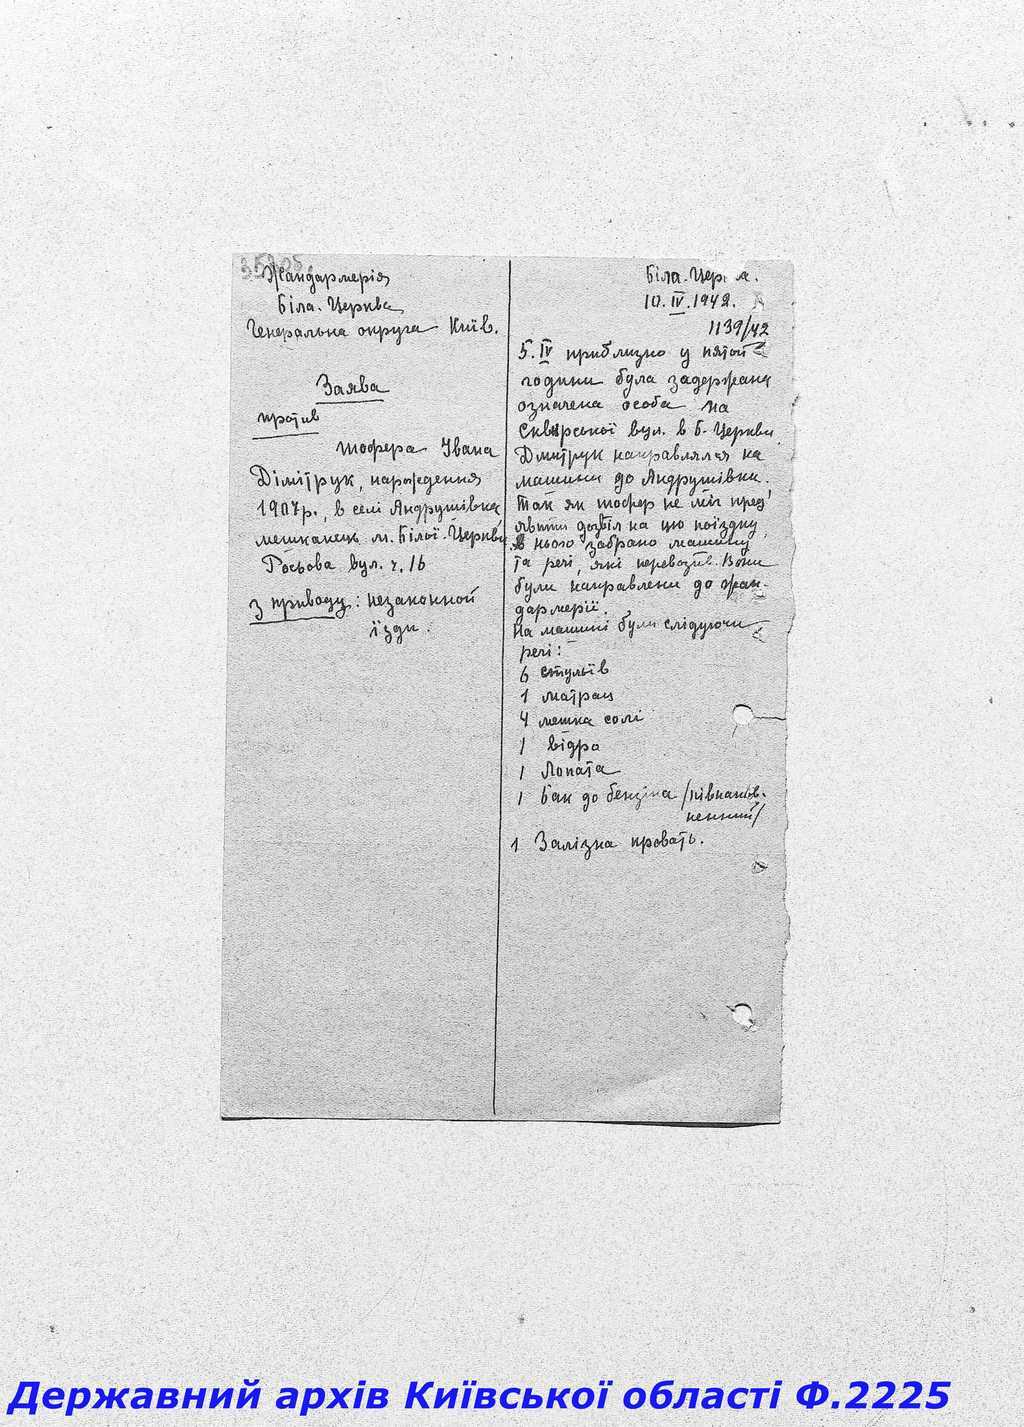 Жандармерія
Біла-Церква
Генеральна округа Київ.
Заява
против
шофера Івана
Дімітрук, народження
1907р., в селі Андрушівка
мешканець м. Білої-Церкви
Росьова вул. ч. 16
З приводу: незаконной
їзди.
Біла-Церква.
10.IV.1942.
1139/42
5.IV приблизно у пятой
години була задержана
означена особа на
Сквирської вул. в Б. Церкви.
Дмитрук направлялся на
машини до Андрушівки.
Так як шофер не міг пред'
явити дозвіл на цю поїздку,
в нього забрано машину
та речі, які перевозив. Вони
були направлени до жан-
дармерії.
На машині були слідуючи
речі:
6 стульів
1 матрац
4 мешка солі
1 відро
1 Лопата
1 бак до бензіна /півнапов.
ненний/
1 Залізна кровать.
Державний архів Київської області Ф.2225